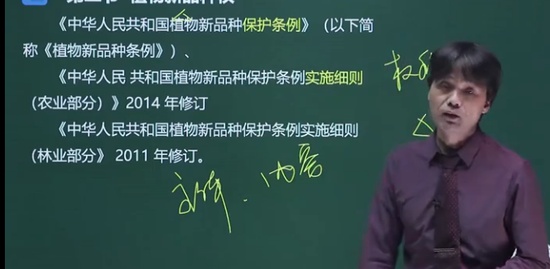 《中华人民共和国植物新品种保护条例》（以下简
称《植物新品种条例》）、
《中华人民 共和国植物新品种保护条例实施细则
（农业部分）》2014 年修订
《中华人民共和国植物新品种保护条例实施细则
（林业部分） 2011 年修订。